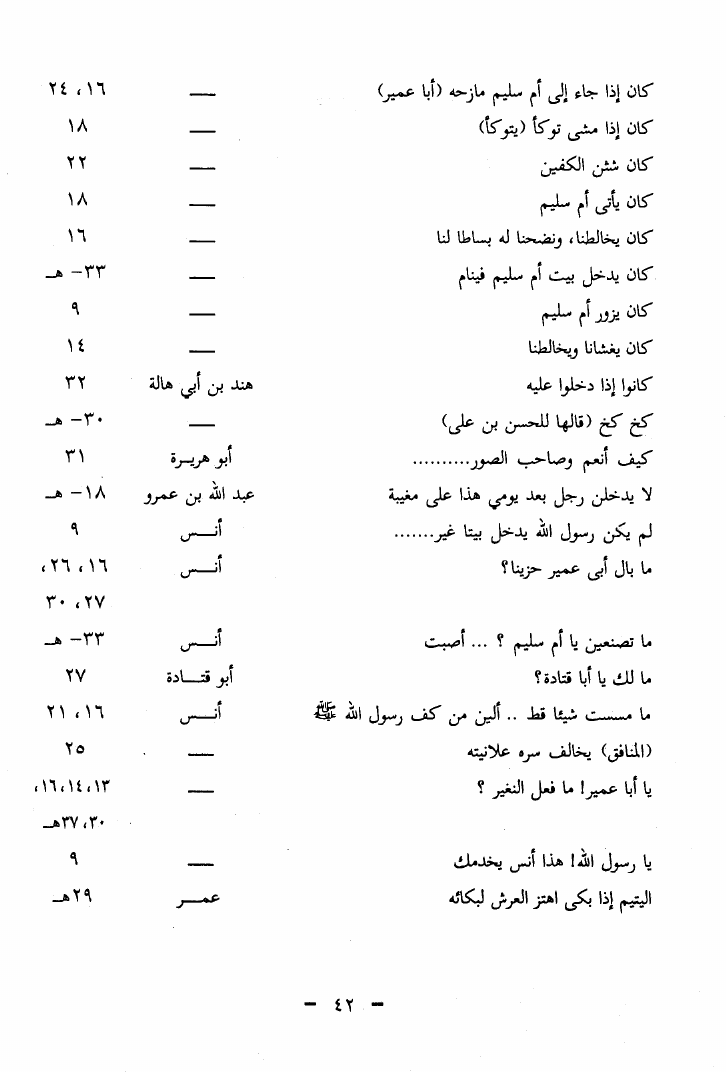 كان إذا جاء إلى أم سليم مازحه (أبا عمير) — ١٦، ٢٤
كان إذا مشى توكأ (يتوكأ) — ١٨
كان شثن الكفين — ٢٢
كان يأتى أم سليم — ١٨
كان يخالطنا، ونضحنا له بساطا لنا — ١٦
كان يدخل بيت أم سليم فينام — ٣٣- هـ
كان يزور أم سليم — ٩
كان يغشانا ويخالطنا — ١٤
كانوا إذا دخلوا عليه هند بن أبي هالة ٣٢
كخ كخ (قالها للحسن بن على) — ٣٠- هـ
كيف أنعم وصاحب الصور.......... أبو هريـرة ٣١
لا يدخلن رجل بعد يومي هذا على مغيبة عبد الله بن عمرو ١٨- هـ
لم يكن رسول الله يدخل بيتا غير....... أنـــس ٩
ما بال أبى عمير حزينا؟ أنـــس ١٦، ٢٦،
٢٧، ٣٠
ما تصنعين يا أم سليم ؟ ... أصبت أنـــس ٣٣- هـ
ما لك يا أبا قتادة؟ أبو قتــادة ٢٧
ما مسست شيئا قط .. ألين من كف رسول الله ﷺ أنـــس ١٦، ٢١
(المنافق) يخالف سره علانيته — ٢٥
يا أبا عمير! ما فعل النغير ؟ — ١٣، ١٤، ١٦،
٣٠، ٣٧هـ
يا رسول الله! هذا أنس يخدمك — ٩
اليتيم إذا بكى اهتز العرش لبكائه عمـــر ٢٩هـ
– ٤٢ –